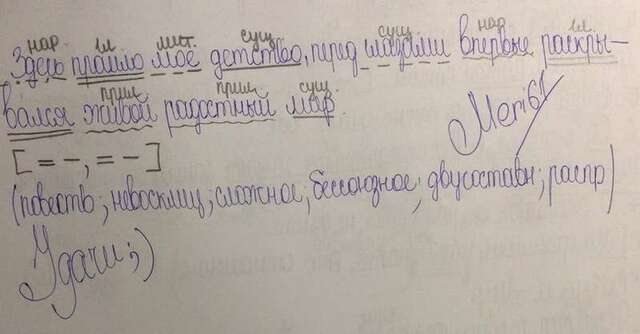 нар. гл. мест. сущ. сущ. нар гл.
Здесь прошло моё детство, перед глазами впервые раскры-
прил прил сущ.
вался живой радостный мир.
[=-, =-]
Meri61
(повеств; невосклиц; сложное; бессоюзное; двусоставн; распр)
Удачи ;)